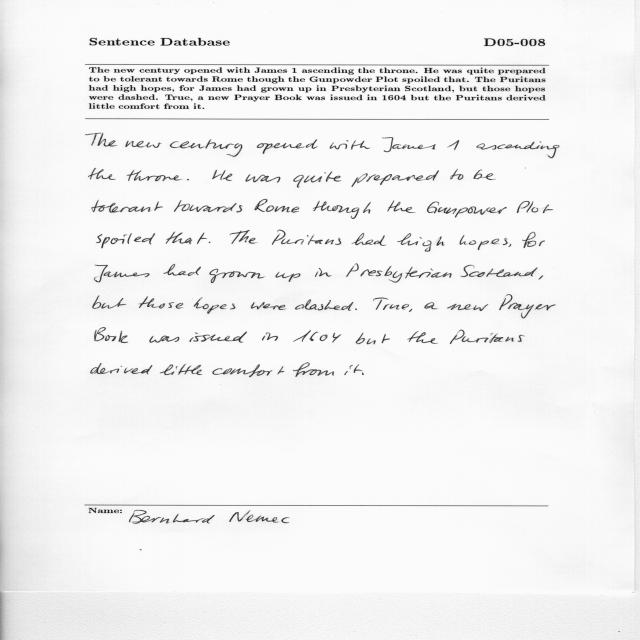 Sentence Database D05-008
The new century opened with James 1 ascending the throne. He was quite prepared
to be tolerant towards Rome though the Gunpowder Plot spoiled that. The Puritans
had high hopes, for James had grown up in Presbyterian Scotland, but those hopes
were dashed. True, a new Prayer Book was issued in 1604 but the Puritans derived
little comfort from it.
The new century opened with James 1 ascending
the throne. He was quite prepared to be
tolerant towards Rome though the Gunpower Plot
spoiled that. The Puritans had high hopes, for
James had grown up in Presbyterian Scotland,
but those hopes were dashed. True, a new Prayer
Book was issued in 1604 but the Puritans
derived little comfort from it.
Name: Bernhard Nemec